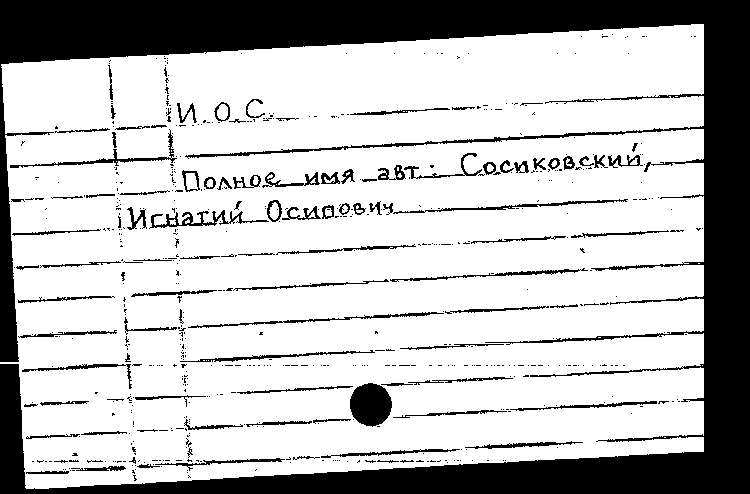 И. О. С.
Полное имя авт.: Сосиковский,
Игнатий Осипович